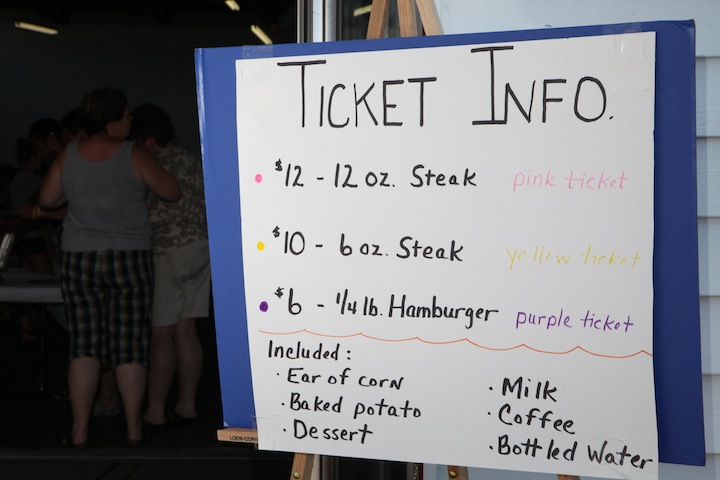 TICKET INFO.
$12 - 12 oz. Steak pink ticket
$10 - 6 oz. Steak yellow ticket
$6 - 1/4 lb. Hamburger purple ticket
Included:
· Ear of corn
· Baked potato
· Dessert
· Milk
· Coffee
· Bottled Water